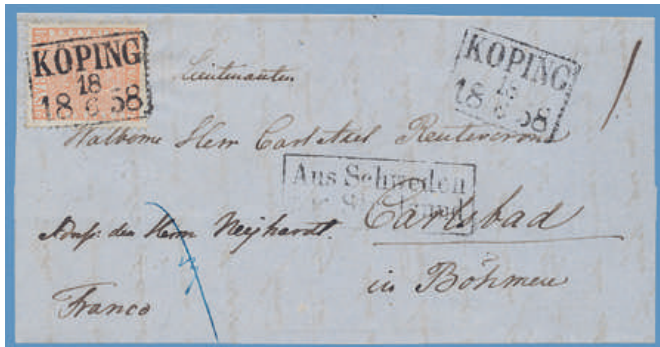 KÖPING
18
18 6 58
KÖPING
18
18 6 58
Lieutenanten
Welborne Herr Carl Axel Reutercrona
Aus Schweden
Carlsbad
Adress: den Herrn Neijhardt.
in Böhmen
Franco